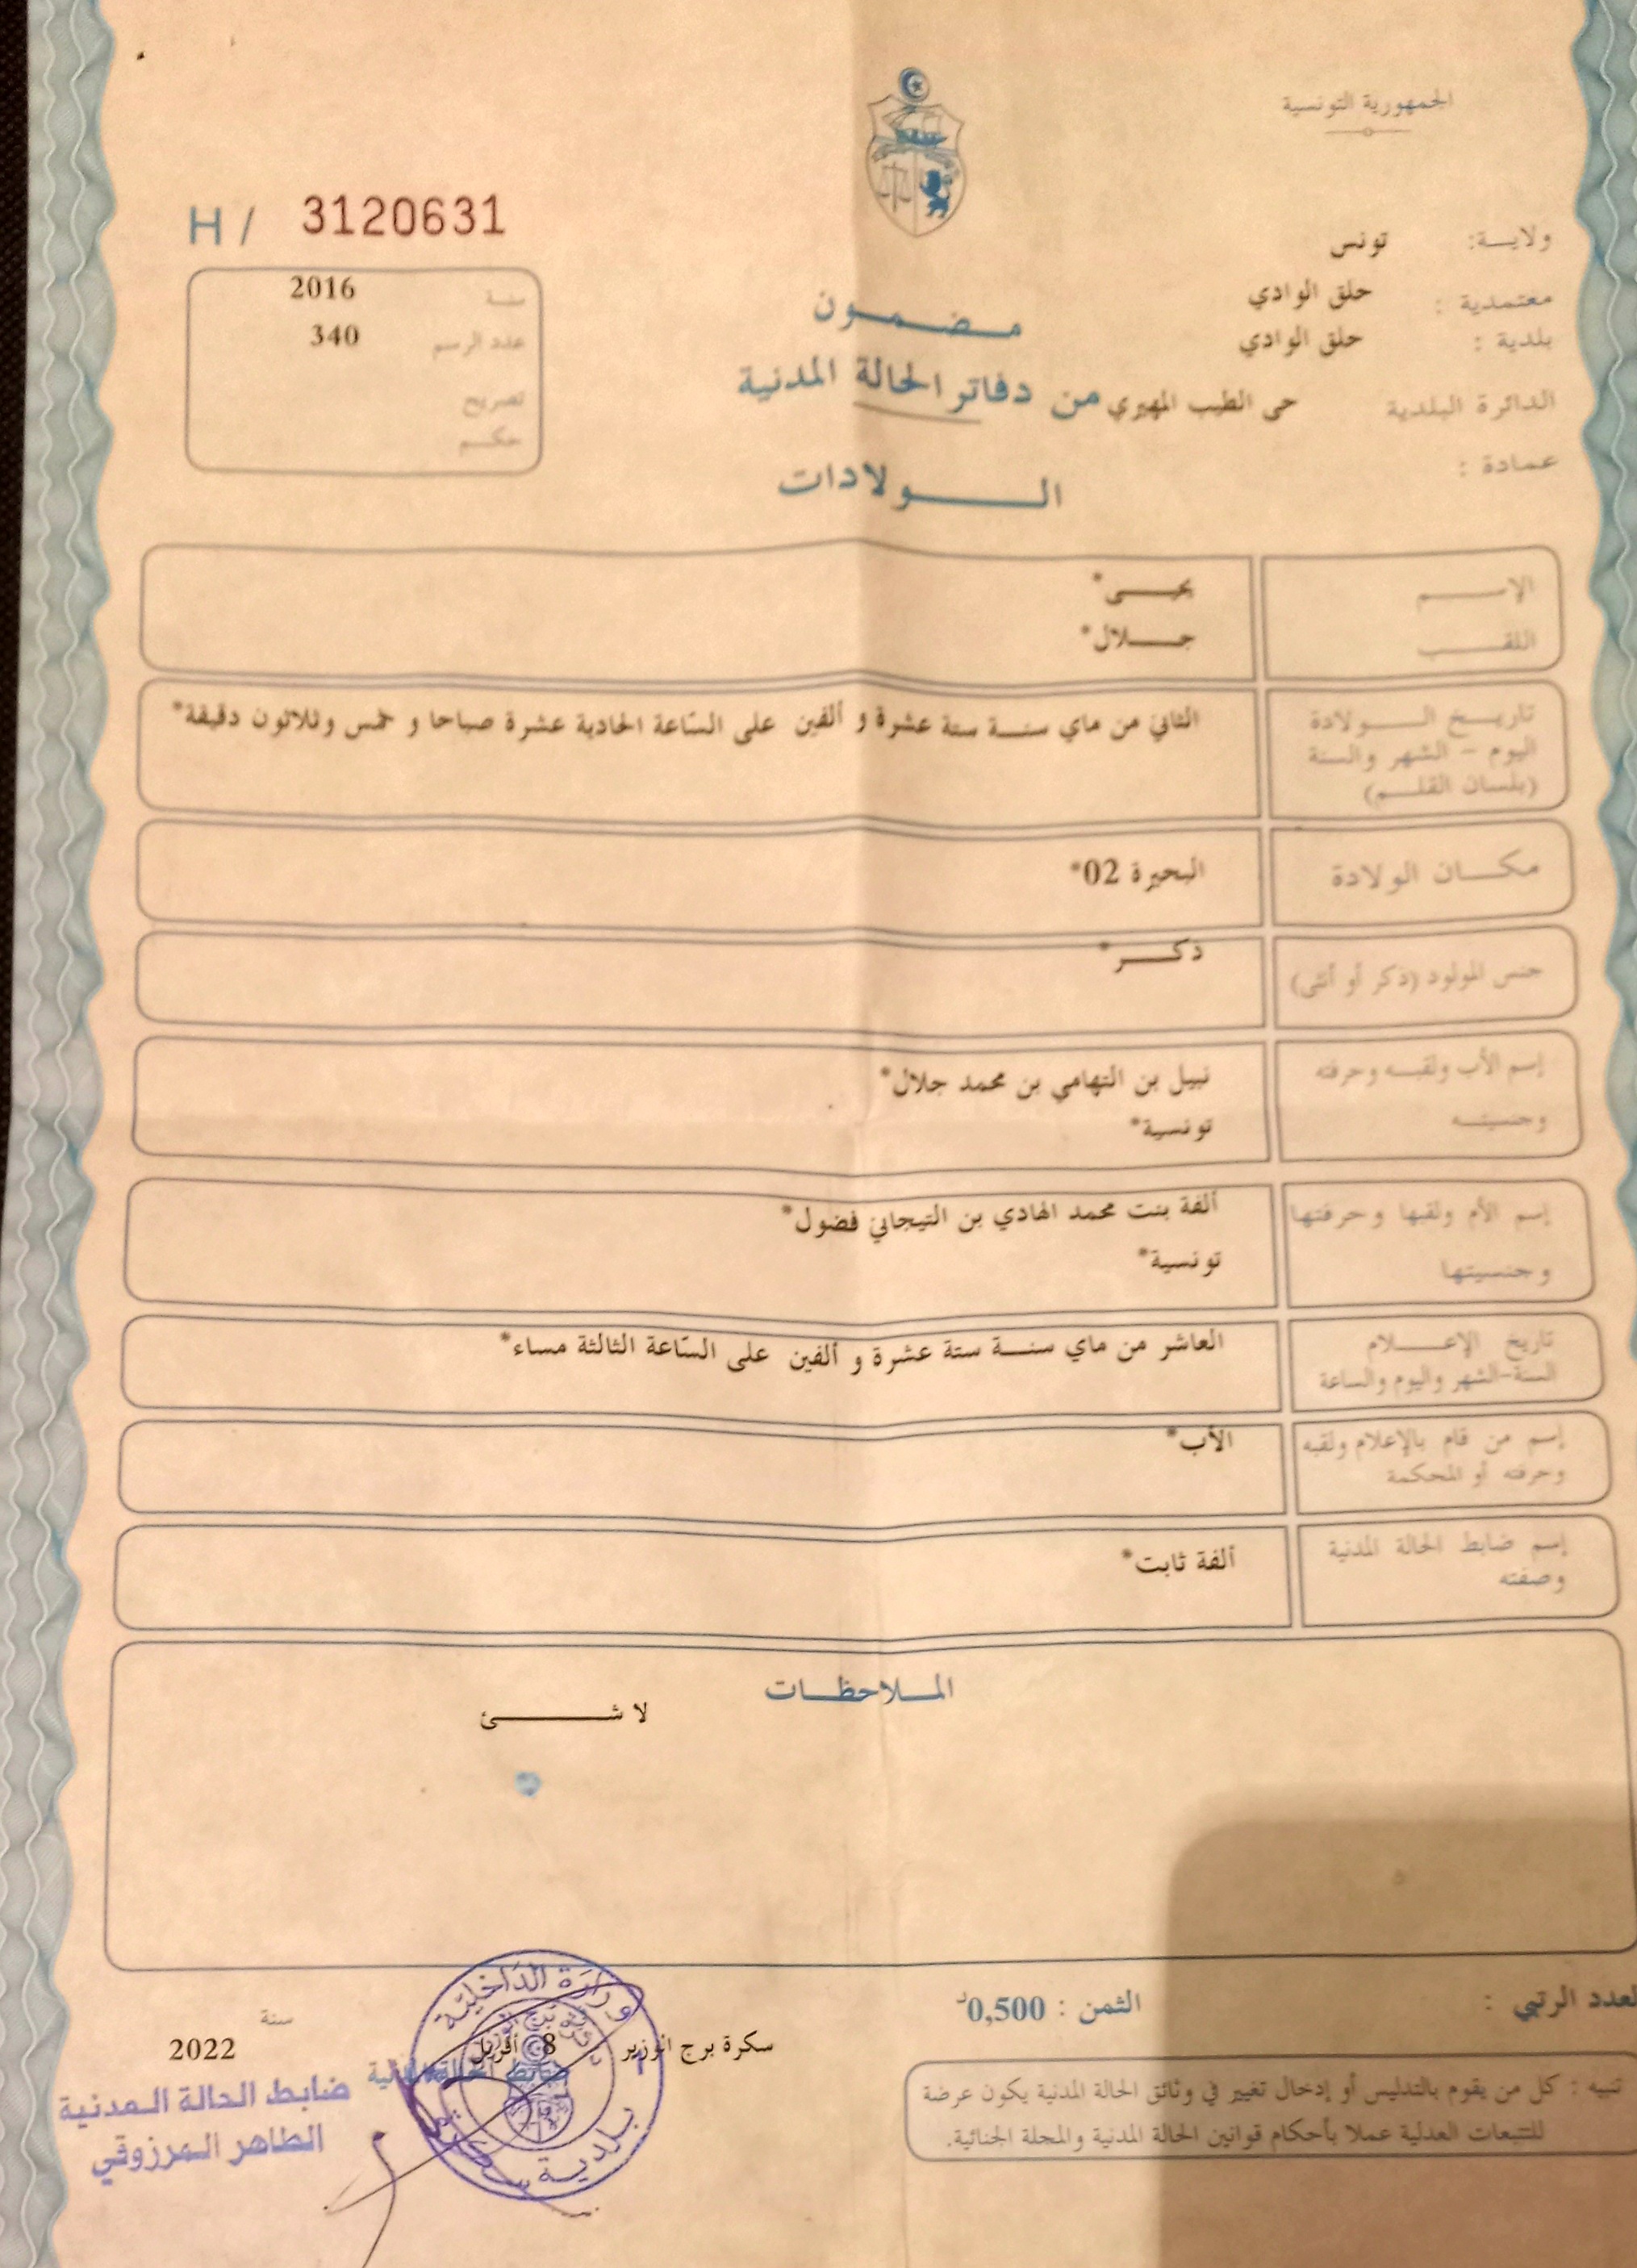 الجمهورية التونسية
H / 3120631
ولايـــة: تونس
معتمدية : حلق الوادي
بلدية : حلق الوادي
الدائرة البلدية حى الطيب المهيري
عمادة :
سنة 2016
عدد الرسم 340
تصريح
حكـــم
مـــضـــمـــون
من دفاتر الحالة المدنية
الــــــولادات
الإســــم يحـــــى*
اللقـــــب جـــــلال*
تاريـــخ الـــــولادة
اليوم - الشهر والسنة
(بلسان القلـــم)
الثاني من ماي سنـــة ستة عشرة و ألفين على السّاعة الحادية عشرة صباحا و خمس وثلاثون دقيقة*
مكـــان الولادة البحيرة 02*
جنس المولود (ذكر أو أنثى) ذكـــــر*
إسم الأب ولقبـــه وحرفته نبيل بن التهامي بن محمد جلال*
وجنسيتـــه تونسية*
إسم الأم ولقبها وحرفتها ألفة بنت محمد الهادي بن التيجاني فضول*
وجنسيتها تونسية*
تاريخ الإعـــــلام
السنة-الشهر واليوم والساعة
العاشر من ماي سنـــة ستة عشرة و ألفين على السّاعة الثالثة مساء*
إسم من قام بالإعلام ولقبه
وحرفته أو المحكمة
الأب*
إسم ضابط الحالة المدنية
وصفته
ألفة ثابت*
المـــلاحظـــات
لا شـــــــئ
لعدد الرتبي :
الثمن : 0,500د
سكرة برج الوزير 8 أفريل
سنة
2022
ضابط الحالة المدنية
ضابط الحالة المدنية
الطاهر المرزوقي
وزارة الداخلية
بلدية سكرة
تنبيه : كل من يقوم بالتدليس أو إدخال تغيير في وثائق الحالة المدنية يكون عرضة
للتتبعات العدلية عملا بأحكام قوانين الحالة المدنية والمجلة الجنائية.